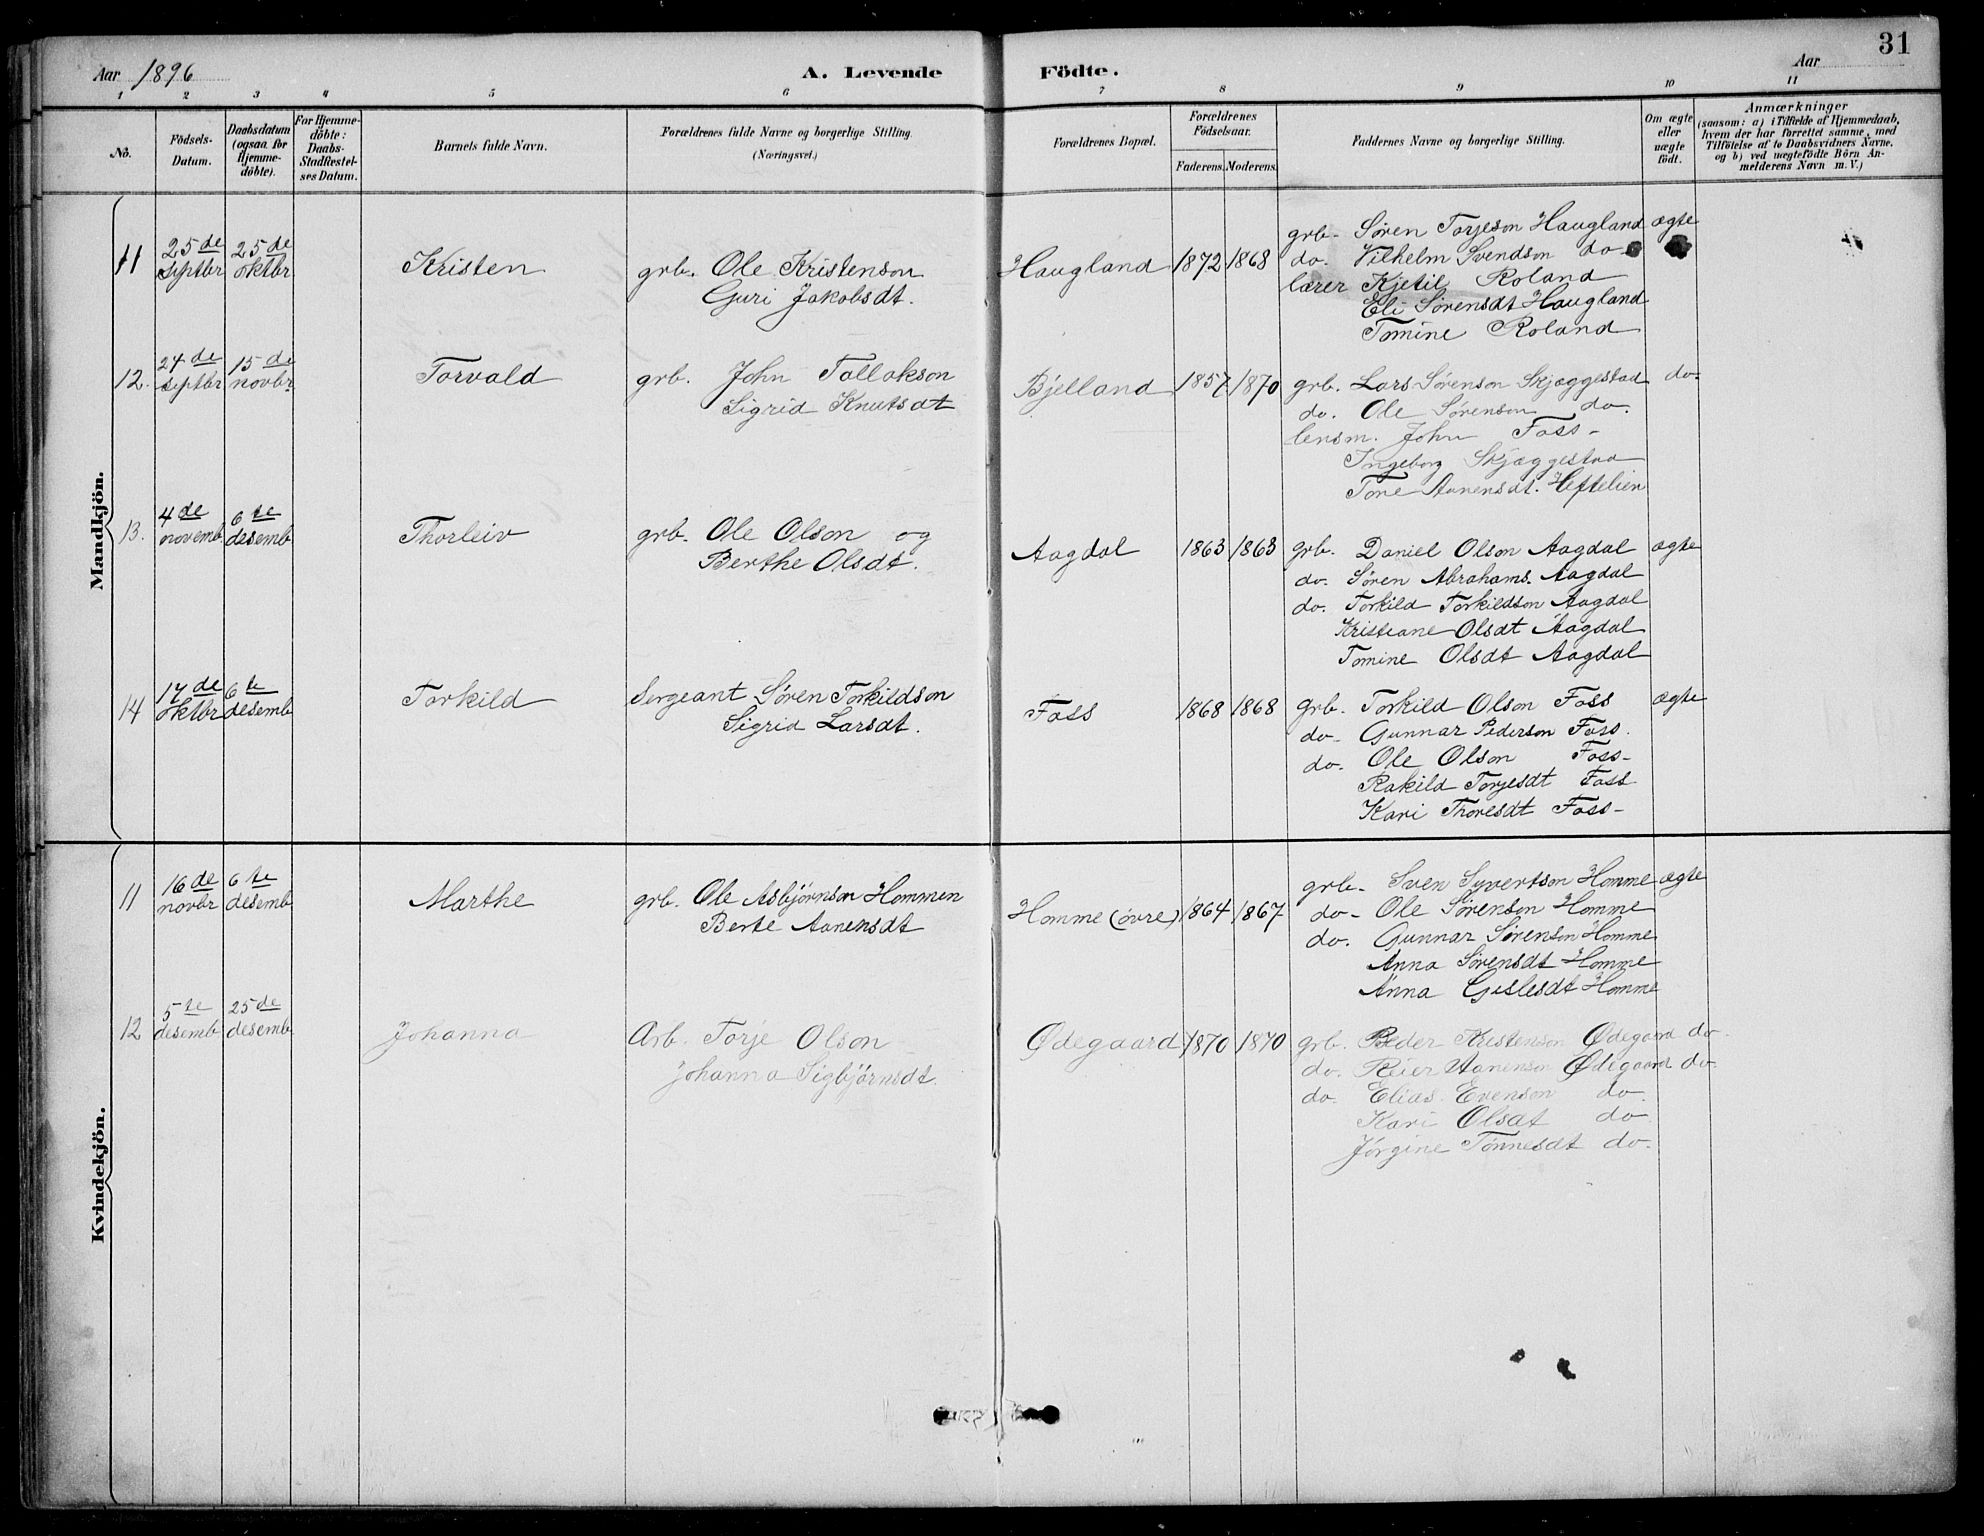 31
Aar 1896
A. Levende Födte.
Aar
1 2 3 4 5 6 7 8 9 10 11
No.
Födsels-Datum.
Daabsdatum (ogsaa for Hjemme-döbte).
For Hjemme-döbte: Daabs-Stadfæstel-ses Datum.
Barnets fulde Navn.
Forældrenes fulde Navne og borgerlige Stilling. (Næringsvei.)
Forældrenes Bopæl.
Forældrenes Födselsaar.
Faderens. Moderens.
Faddernes Navne og borgerlige Stilling.
Om ægte eller uægte født.
Anmærkninger
(saasom: a) i Tilfælde af Hjemmedaab,
hvem der har forrettet samme, med
Tilföielse af to Daabsvidners Navne,
og b) ved uægtefödte Börn An-
melderens Navn m. V.)
Mandkjön.
11 25de septbr 25de oktbr Kristen grb. Ole Kristenson Haugland 1872 1868 grb. Søren Torjeson Haugland ægte
Guri Jakobsdt. do. Vilhelm Svendson do
lærer Kjetil Roland
Eli Sørensdt Haugland
Tomine Roland
12. 24de septbr 15de novbr Torvald grb. John Tallakson Bjelland 1857 1870 grb. Lars Sørenson Skjæggestad do.
Sigrid Knutsdt do. Ole Sørenson do.
lensm. John Foss
Ingeborg Skjæggestad
Tone Aanensdt. Heftelien
13. 4de novemb 6te desemb Thorleiv grb. Ole Olson og Aagdal 1863 1863 grb. Daniel Olson Aagdal ægte
Berthe Olsdt. do. Søren Abrahams. Aagdal
do. Torkild Torkildson Aagdal
Kristiane Olsdt Aagdal
Tomine Olsdt Aagdal
14 17de oktbr 6te desemb Torkild Sergeant Søren Torkildson Foss 1868 1868 grb. Torkild Olson Foss ægte
Sigrid Larsdt. do. Gunnar Pederson Foss.
do. Ole Olson Foss
Rakild Torjesdt Foss
Kari Thoresdt Foss
Kvindekjön.
11 16de novbr 6te desemb Marthe grb. Ole Asbjørnson Hommen Homme (øvre) 1864 1867 grb. Sven Syvertson Homme ægte
Berte Aanensdt do. Ole Sørenson Homme
do. Gunnar Sørenson Homme
Anna Sørensdt Homme
Anna Gislesdt Homme
12 5te desemb 25de desemb Johanna Arb. Torje Olson Ødegaard 1870 1870 grb. Peder Kristenson Ødegaard do
Johanna Sigbjørnsdt. do. Reier Aanenson Ødegaard do.
do. Elias Evenson do.
Kari Olsdt do
Jørgine Tønnesdt do.